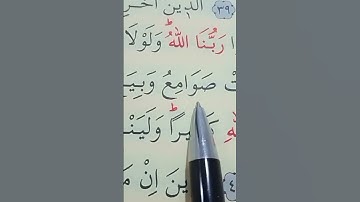 ٣٩ اَلَّذِينَ اُخْرِ
ا رَبُّنَا اللّٰهُ وَلَوْلَا
تْ صَوَامِعُ وَبِيَـ
ـهِ كَثِيراً وَلَيَنْـ
٤ ـينَ اِنْ مَـ